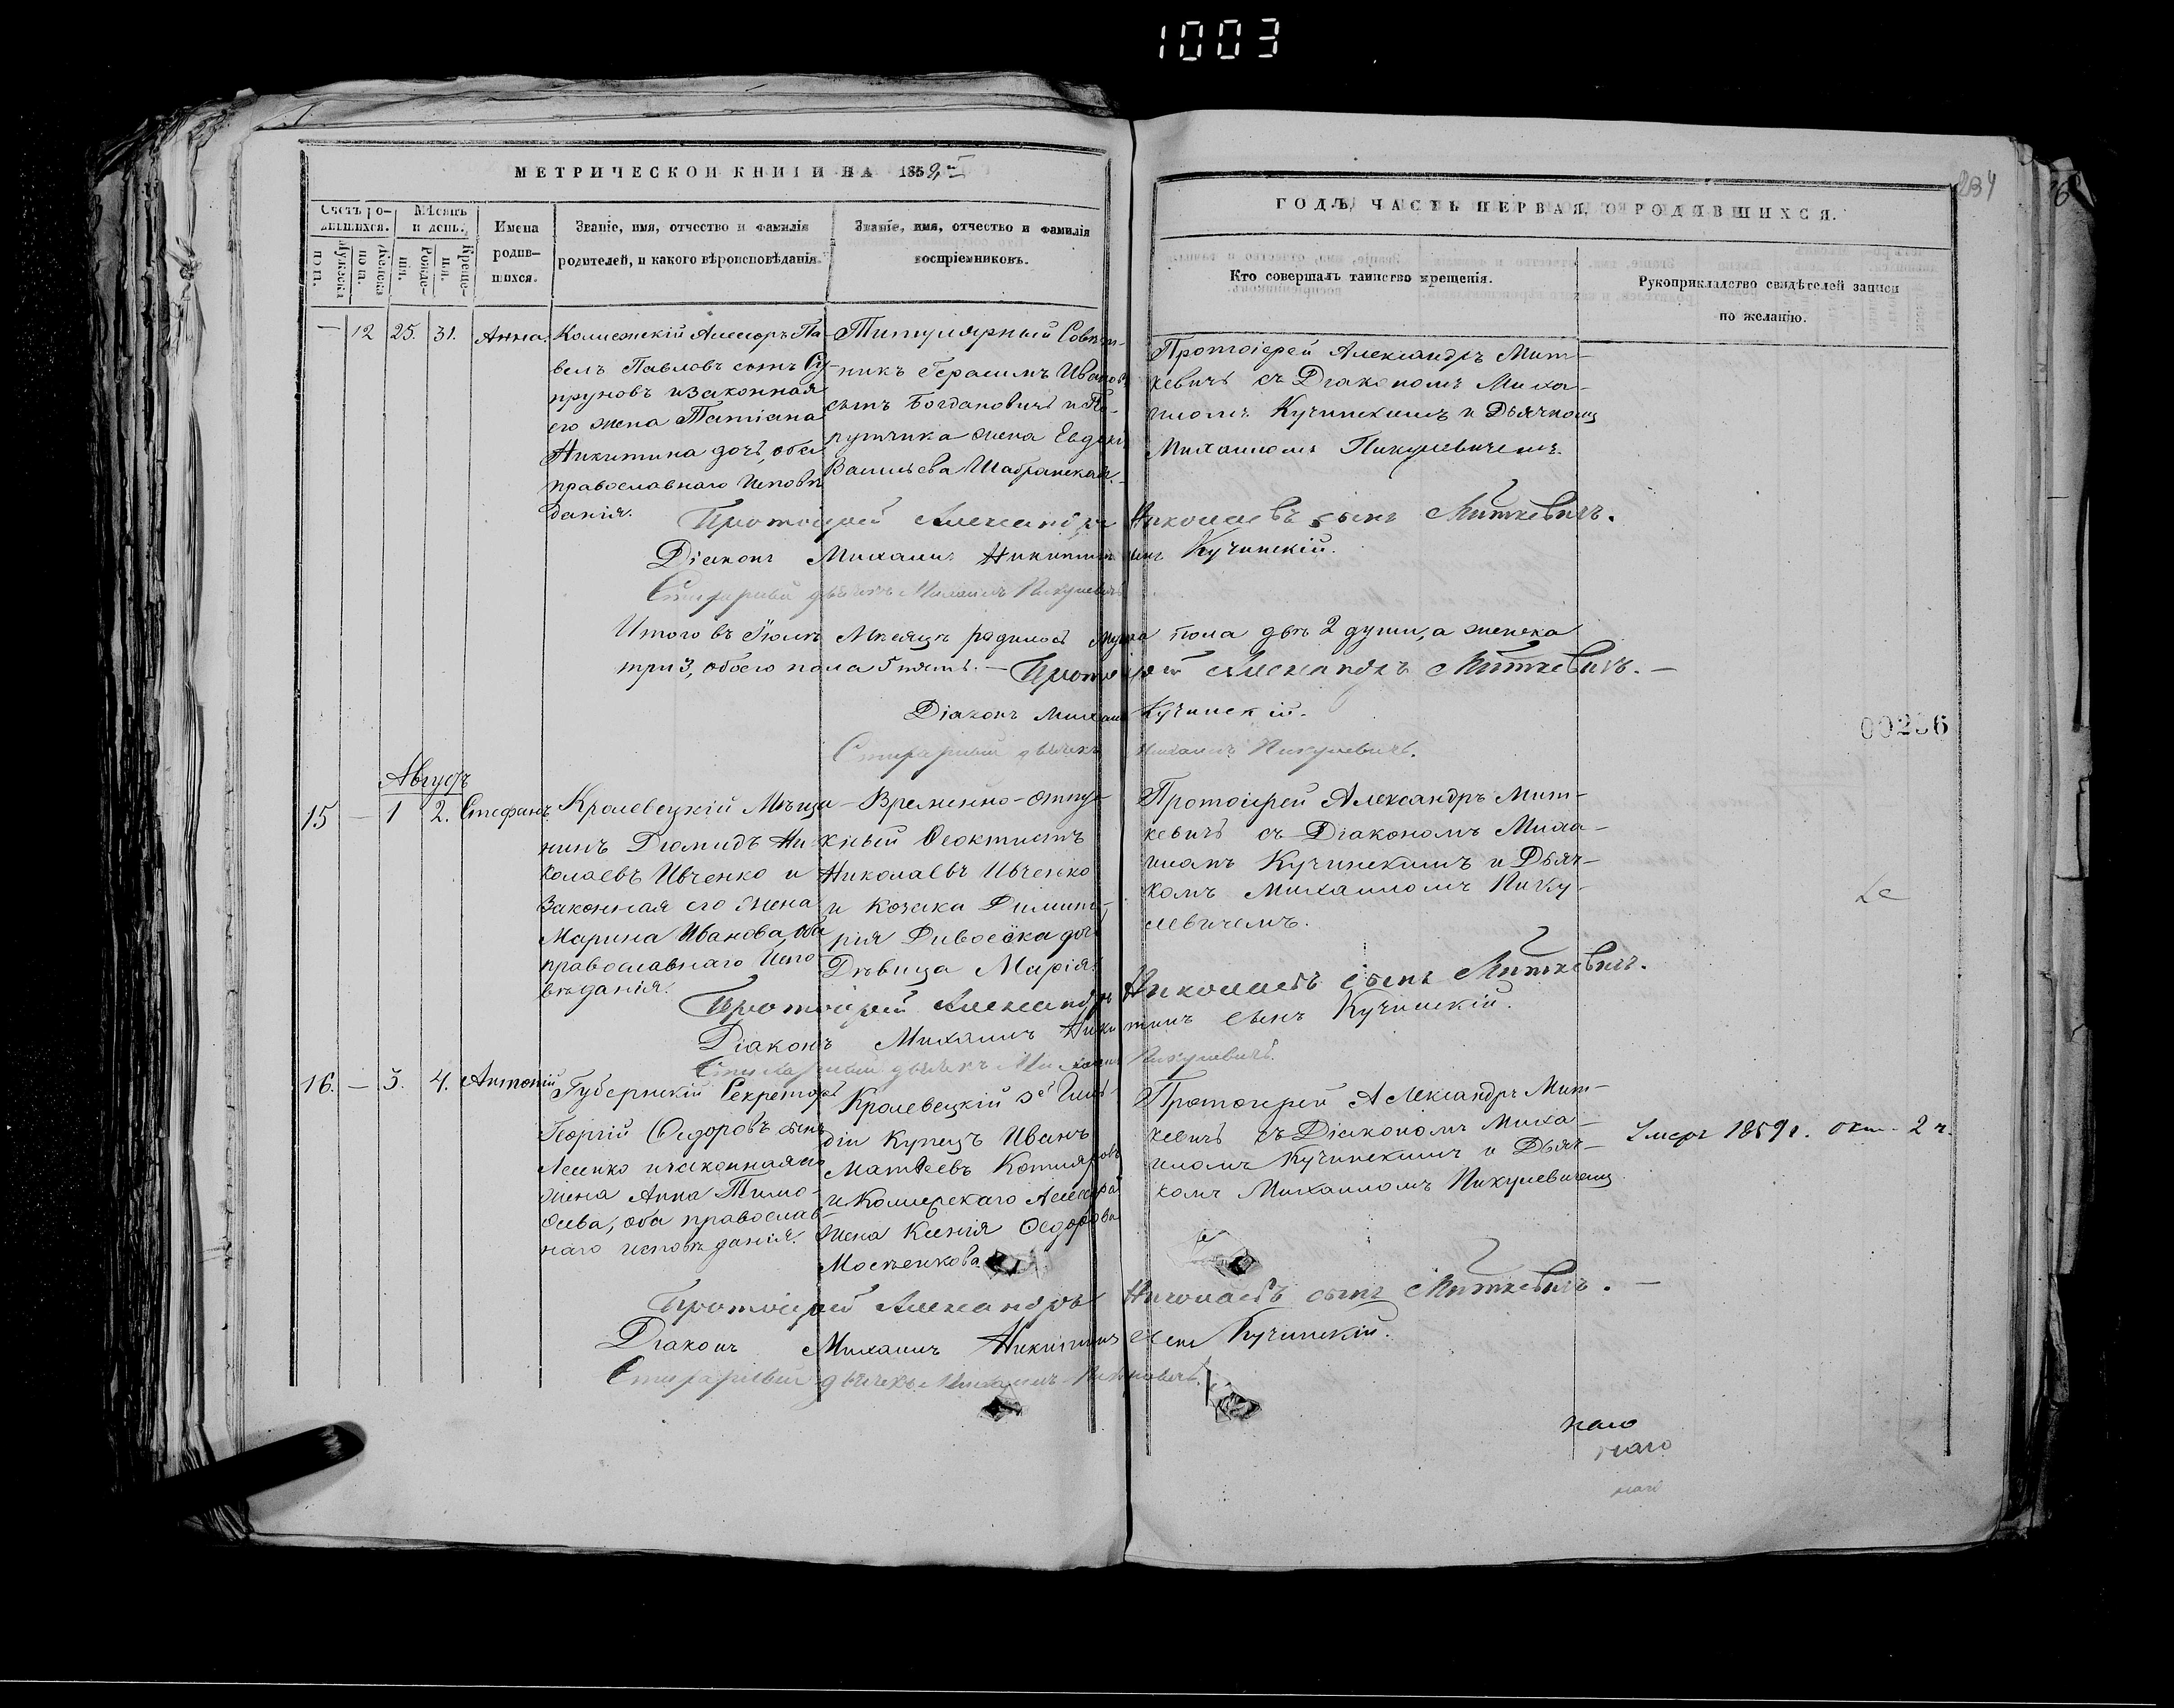 1003
МЕТРИЧЕСКОЙ КНИГИ НА 1858й
ГОДЪ, ЧАСТЬ ПЕРВАЯ, О РОДИВШИХСЯ.
234
Счетъ родившихся.
Мѣсяцъ и день.
Мужеска пола.
Женска пола.
Рожденія.
Крещенія.
Имена родившихся.
Званіе, имя, отчество и фамилія
родителей, и какого вѣроисповѣданія.
Званіе, имя, отчество и фамилія
воспріемниковъ.
Кто совершалъ таинство крещенія.
Рукоприкладство свидѣтелей записи
по желанію.
— 12 25. 31. Анна.
Колежскій Ассесоръ Па-
велъ Павловъ сынъ Су-
пруновъ и законная
его жена Татіана
Никитина дочь, оба
православнаго Исповѣ
данія.
Титулярный Совѣт-
никъ Герасимъ Ивановъ
сынъ Богдановичъ и По-
рутчика жена Евдокія
Васильева Шабранская.
Протоіерей Александръ Мит-
кевичъ съ Діакономъ Миха-
иломъ Кучинскимъ и Дьячкомъ
Михаиломъ Пикулевичемъ.
Протоіерей Александръ Николаевъ сынъ Миткевичъ.
Діаконъ Михаилъ Никитинъ сынъ Кучинскій.
Стихарный дьячекъ Михаилъ Пикулевичъ
Итого въ Іюлѣ Мѣсяцѣ родилось мужеска пола двѣ 2 души, а женска
три 3, обоего пола 5 пять. — Протоіерей Александръ Миткевичъ. —
Діаконъ Михаилъ Кучинскій.
Стихарный дьячекъ Михаилъ Пикулевичъ.
00236
Августъ
15 — 1 2. Стефанъ.
Кролевецкій Мѣща-
нинъ Діомидъ Ни-
колаевъ Ивченко и
законная его жена
Марина Иванова, оба
православнаго Испо-
вѣданія.
Временно-отпу-
кный Ѳеоктистъ
Николаевъ Ивченко
и Козака Димит-
рія дочь
Дѣвица Марія.
Протоіерей Александръ Мит-
кевичъ съ Діакономъ Миха-
иломъ Кучинскимъ и Дьяч-
комъ Михаиломъ Пику-
левичемъ.
Протоіерей Александръ Николаевъ сынъ Миткевичъ.
Діаконъ Михаилъ Никитинъ сынъ Кучинскій.
Стихарный дьячекъ Михаилъ Пикулевичъ.
16. — 3. 4. Антоній
Губернскій Секретарь
Георгій Ѳедоровъ сынъ
Лесенко и законная его
жена Анна Тимо-
ѳеева, оба православ-
наго исповѣданія.
Кролевецкій 3й Гиль-
діи Купецъ Иванъ
Матвеевъ Котляровъ
и Колежскаго Ассесора
жена Ксенія Ѳедорова
Москвенкова.
Протоіерей Александръ Мит-
кевичъ съ Діакономъ Миха-
иломъ Кучинскимъ и Дьяч-
комъ Михаиломъ Пикулевичемъ
Умеръ 1859 г. Окт. 2 ч.
Протоіерей Александръ Николаевъ сынъ Миткевичъ. —
Діаконъ Михаилъ Никитинъ сынъ Кучинскій.
Стихарный дьячекъ Михаилъ Пикулевичъ.
наго
наго
наго